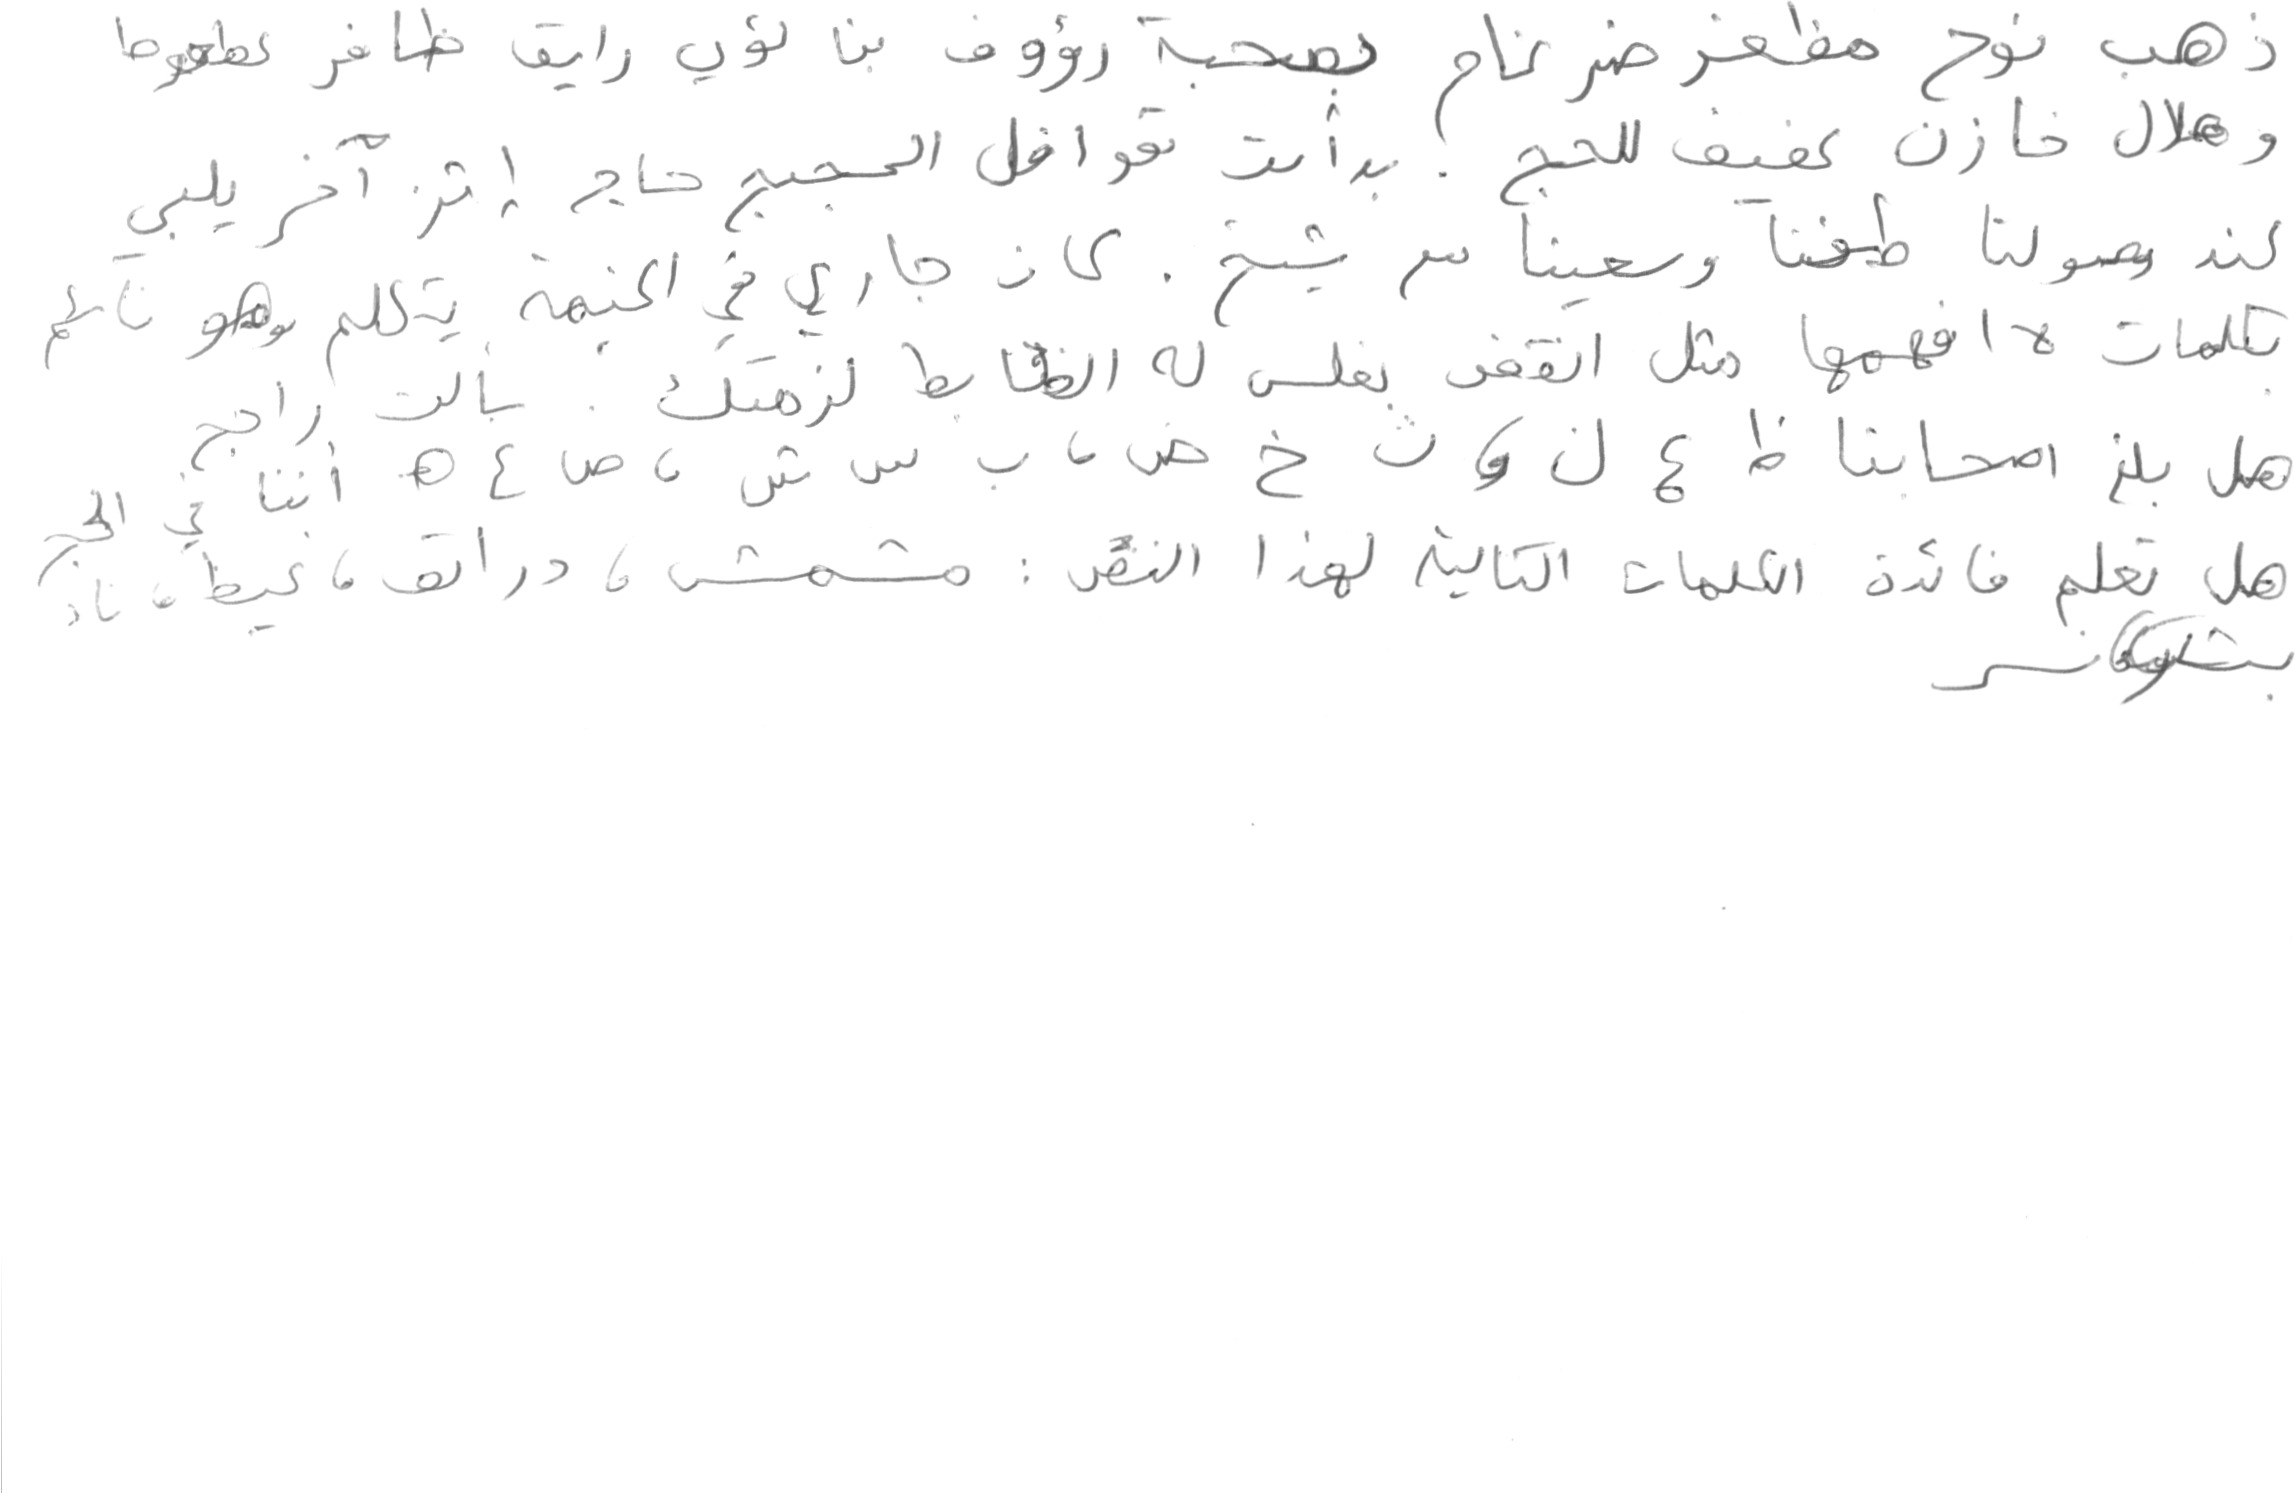 ذهب نوح مظفر ضرغام بصحبة رؤوف بنا لؤي رايق ظافر عطعوط
وهلال خازن عفيف للحج . بدأت قوافل الحجيج حاج إثر آخر يلبي
عند وصولنا طفنا وسعينا مع شيخ . كان جاري في الخيمة يتكلم وهو نائم
بكلمات لا افهمها مثل القفص بغلس له الظابط لزمتك . سألت راجح
هل بلغ اصحابنا ظ ع ل ك ث خ ض ، ب س ش ، ص غ ه أننا في الحج
هل تعلم فائدة الكلمات التالية لهذا النص : مشمش ، دراق ، غيظ ، ناذ